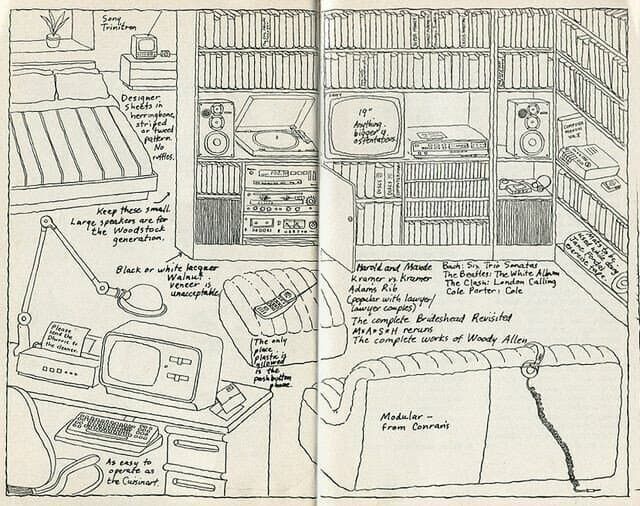 Sony
Trinitron
Designer
Sheets in
herringbone,
striped
or tweed
pattern.
No
ruffles.
19"
Anything
bigger is
ostentatious.
Keep these small.
Large speakers are for
the Woodstock
generation.
Black or white lacquer
Walnut...
veneer is
unacceptable
Harold and Maude
Kramer vs Kramer
Adams Rib
(popular with lawyer/
lawyer couples)
The complete Brideshead Revisited
M*A*S*H reruns
The complete works of Woody Allen
Bach: Six Trio Sonatas
The Beatles: The White Album
The Clash: London Calling
Cole Porter: Cole
The only
place...
plastic is
allowed
is the
pushbutton
phone.
Please
send the
to the
cleaner.
As easy to
operate as
the Cuisinart.
Modular —
from Conran's